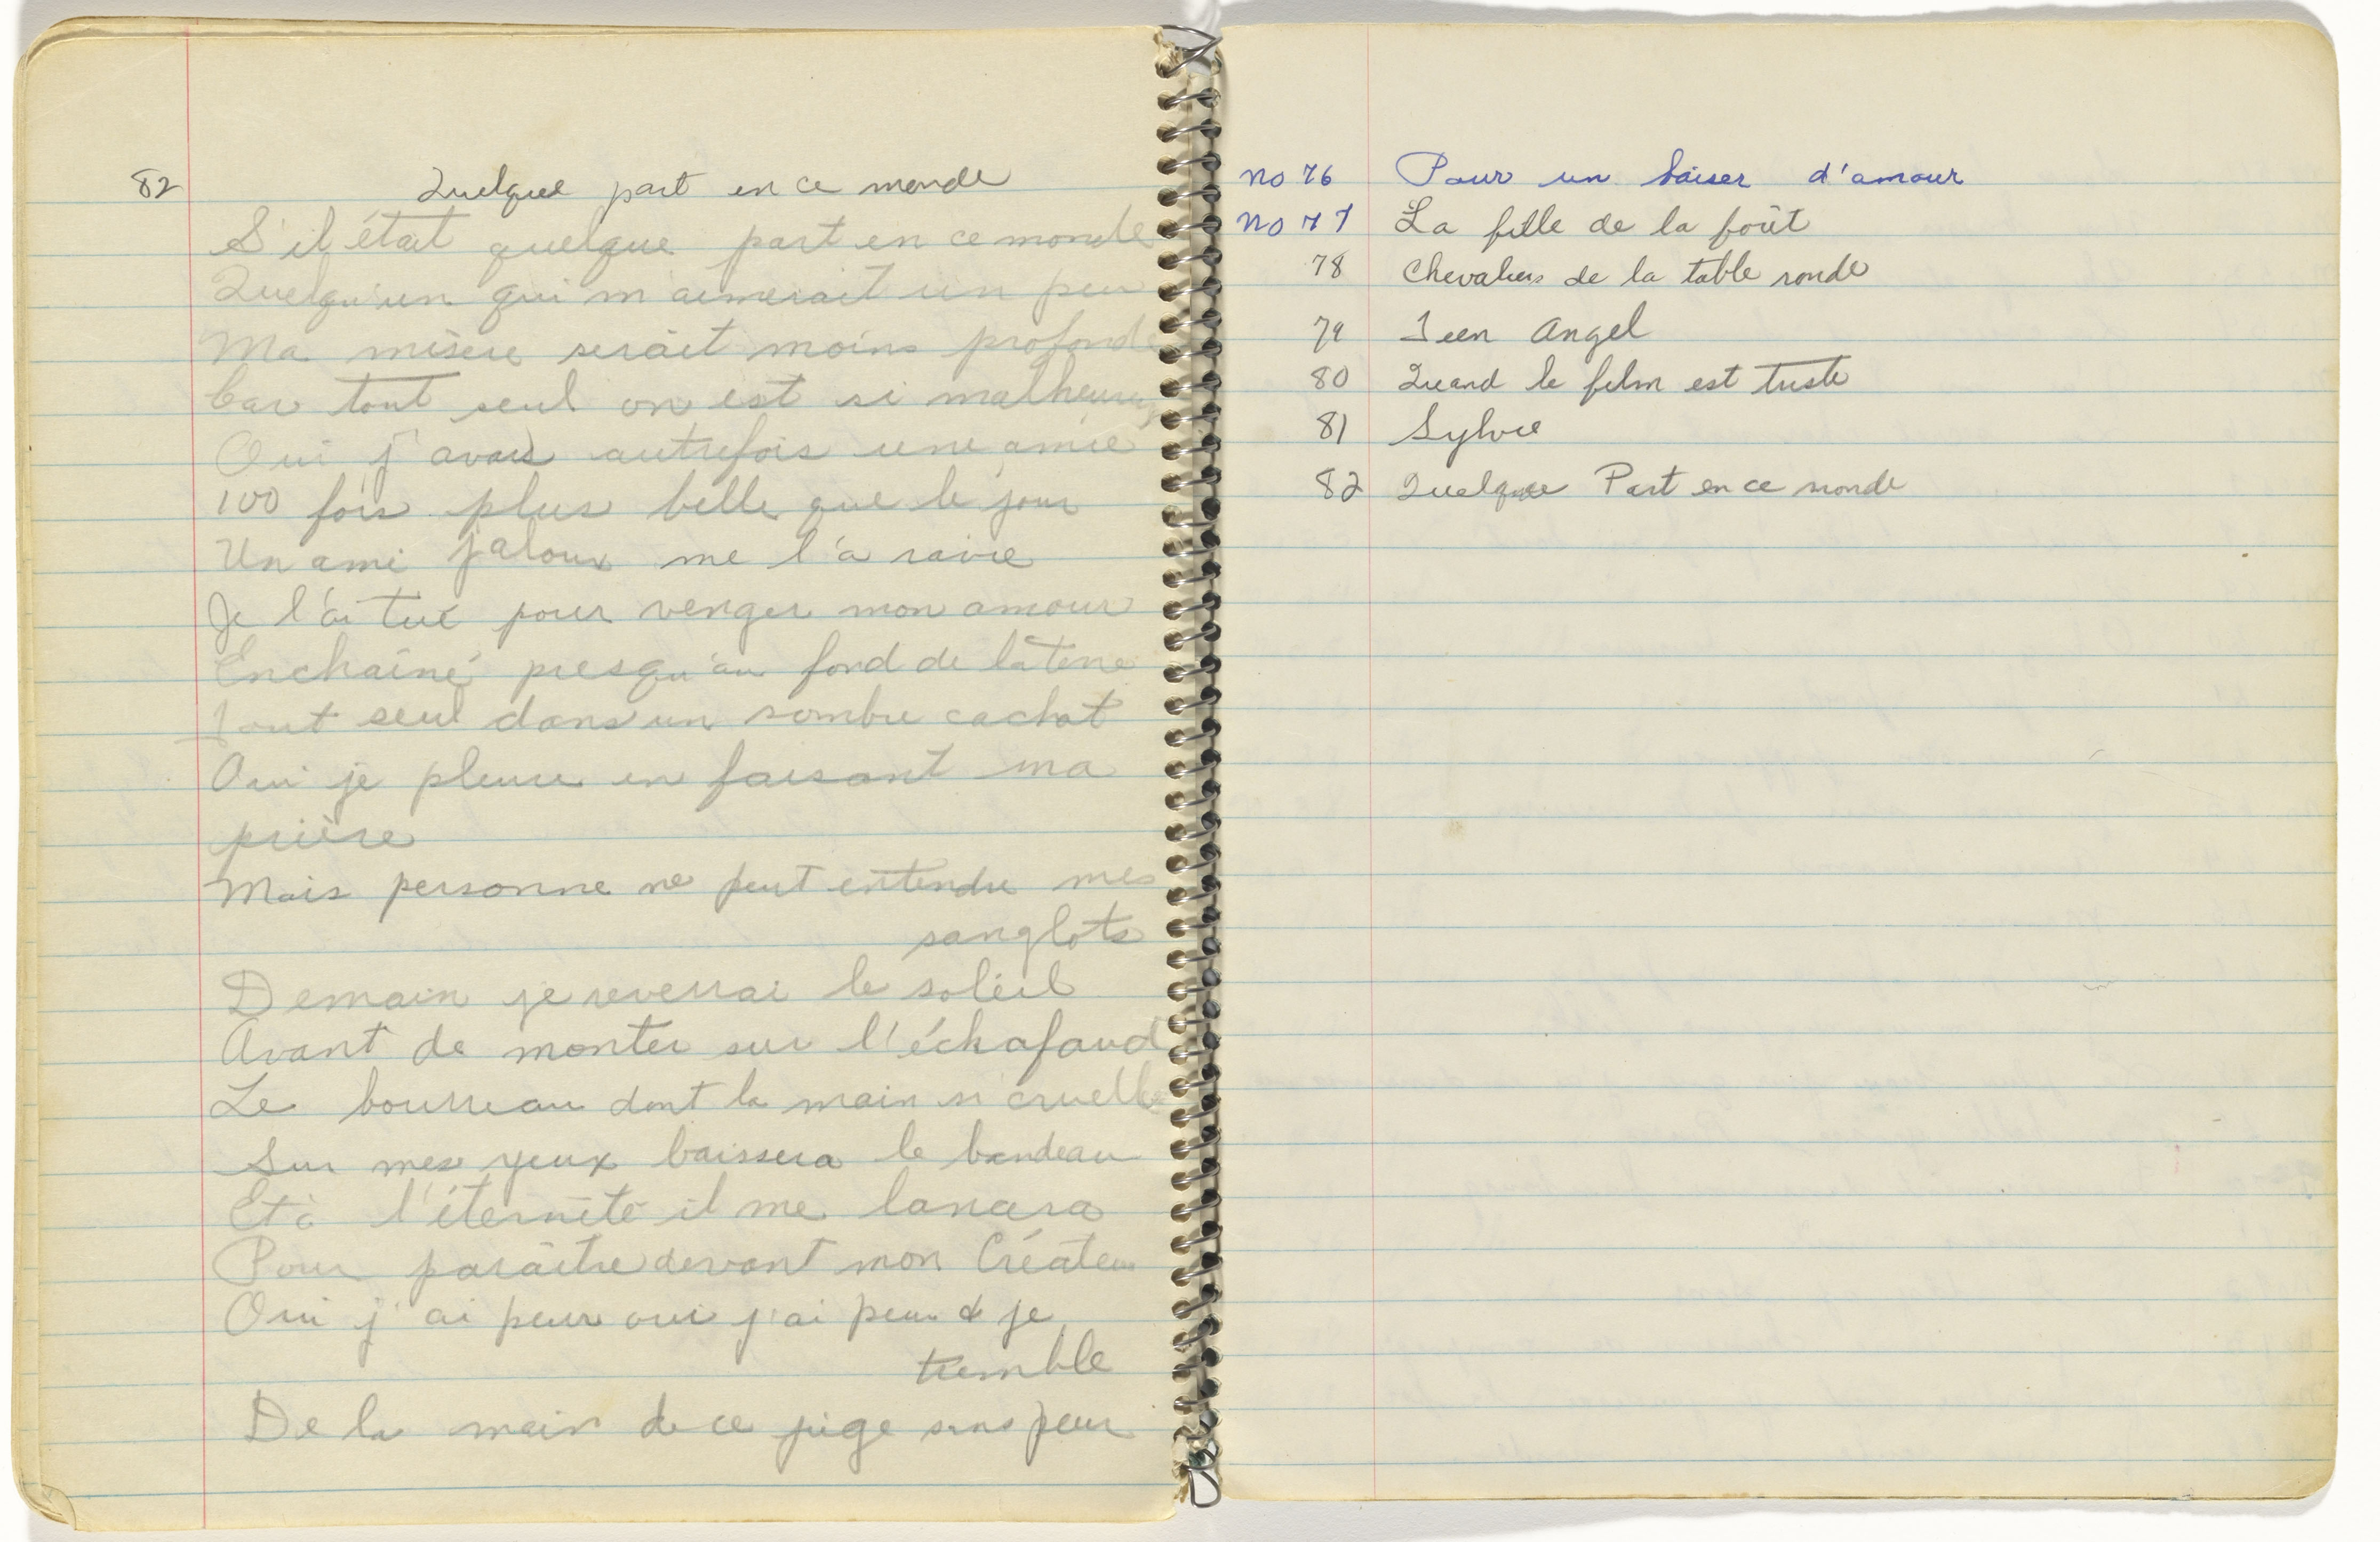 82 Quelque part en ce monde
S'il était quelque part en ce monde
Quelqu'un qui m'aimerait un peu
Ma misère serait moins profonde
Car tout seul on est si malheureux
Oui j'avais autrefois une amie
100 fois plus belle que le jour
Un ami jaloux me l'a ravie
Je l'ai tué pour venger mon amour
Enchaîné presqu'au fond de la terre
Tout seul dans un sombre cachot
Oui je pleure en faisant ma
prière
Mais personne ne peut entendre mes
sanglots
Demain je reverrai le soleil
Avant de monter sur l'échafaud
Le bourreau dont la main si cruelle
Sur mes yeux baissera le bandeau
Et à l'éternité il me lancera
Pour paraître devant mon Créateur
Oui j'ai peur oui j'ai peur & je
tremble
De la main de ce juge sans peur
No 76 Pour un baiser d'amour
No 77 La fille de la forêt
78 Chevaliers de la table ronde
79 Teen Angel
80 Quand le film est triste
81 Sylvie
82 Quelque Part en ce monde